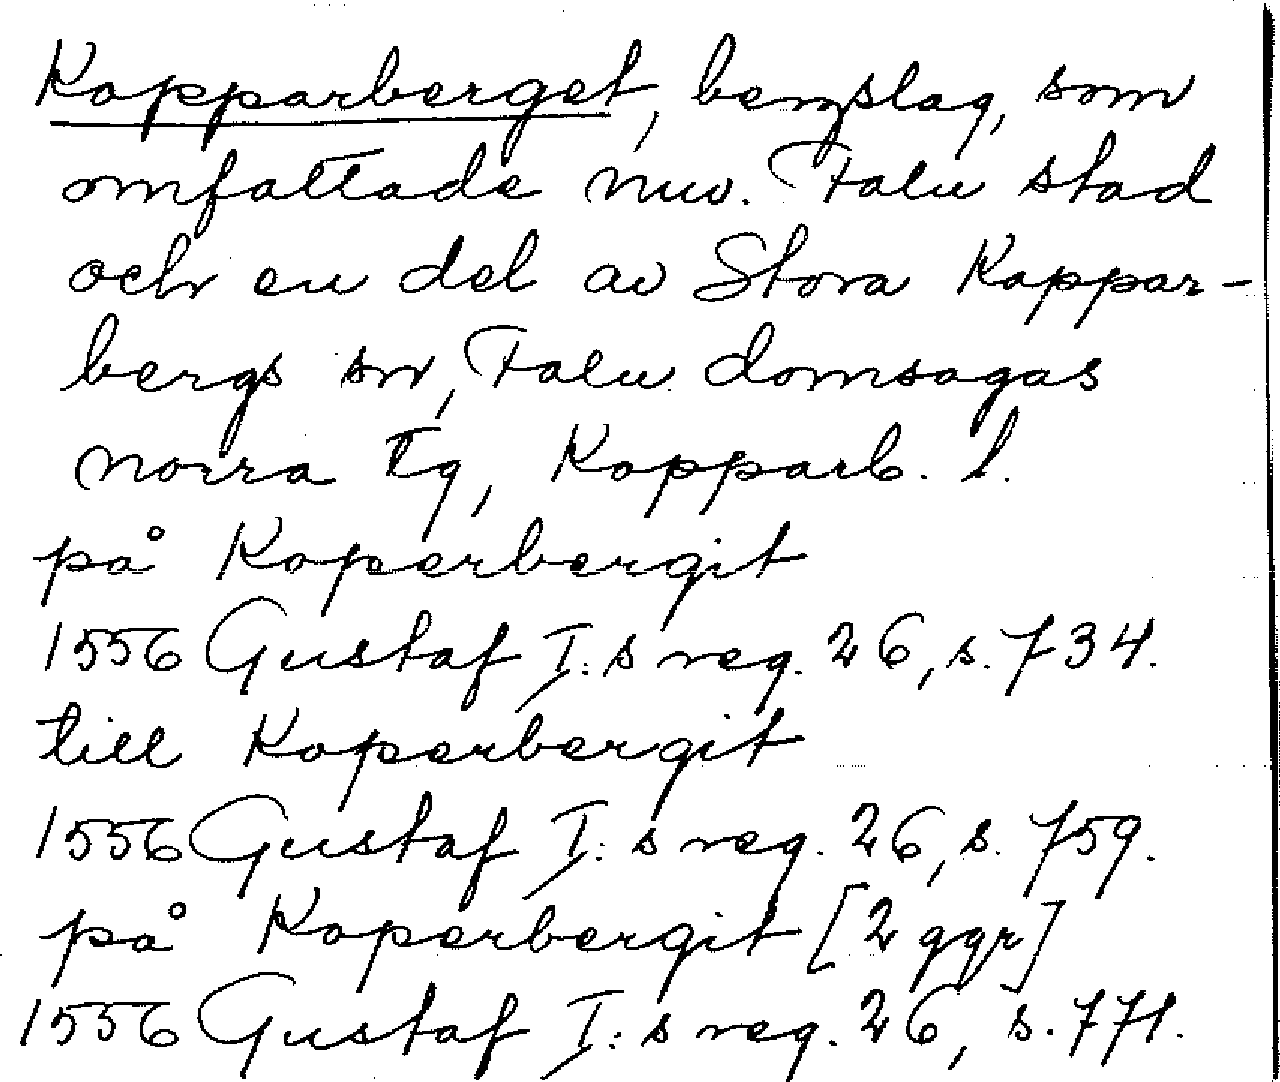 Kopparberget, bergslag, som
omfattade nuv. Falu stad
och en del av Stora Koppar-
bergs sn, Falu domsagas
norra tg, Kopparb. l.
på Koperbergit
1556 Gustaf I:s reg. 26, s. 734.
till Koperbergit
1556 Gustaf I:s reg. 26, s. 759.
på Koperbergit [2 ggr]
1556 Gustaf I:s reg. 26, s. 771.